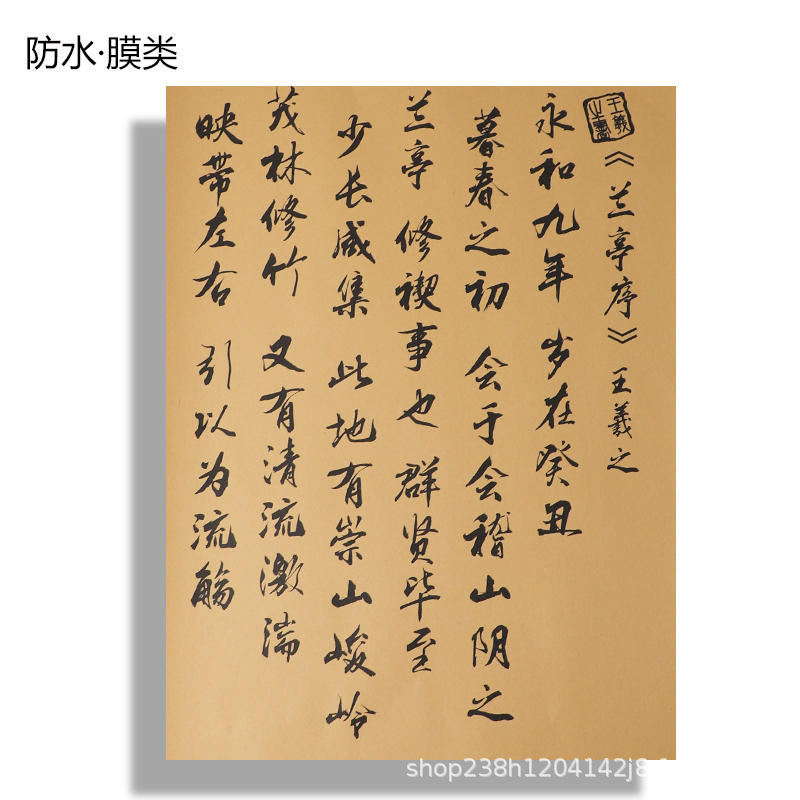 防水·膜类
王羲之书
《兰亭序》 王羲之
永和九年 岁在癸丑
暮春之初 会于会稽山阴之
兰亭 修禊事也 群贤毕至
少长咸集 此地有崇山峻岭
茂林修竹 又有清流激湍
映带左右 引以为流觞
shop238h1204142j8